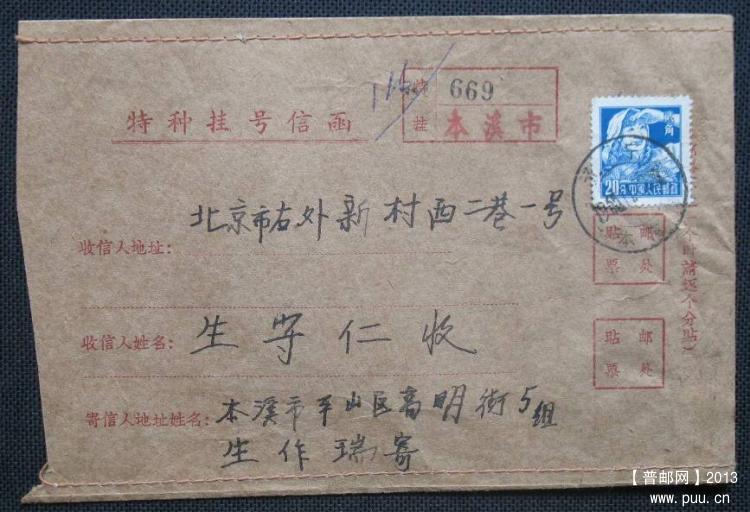 669
本溪市
挂
特种挂号信函
贰角
20分 中国人民邮政
北京市右外新村西二巷一号
收信人地址:
贴邮
票处
个时请逐个分贴)
收信人姓名: 生守仁收
贴邮
票处
寄信人地址姓名: 本溪市平山区高明街5组
生作瑞寄
【普邮网】2013
www.puu.cn